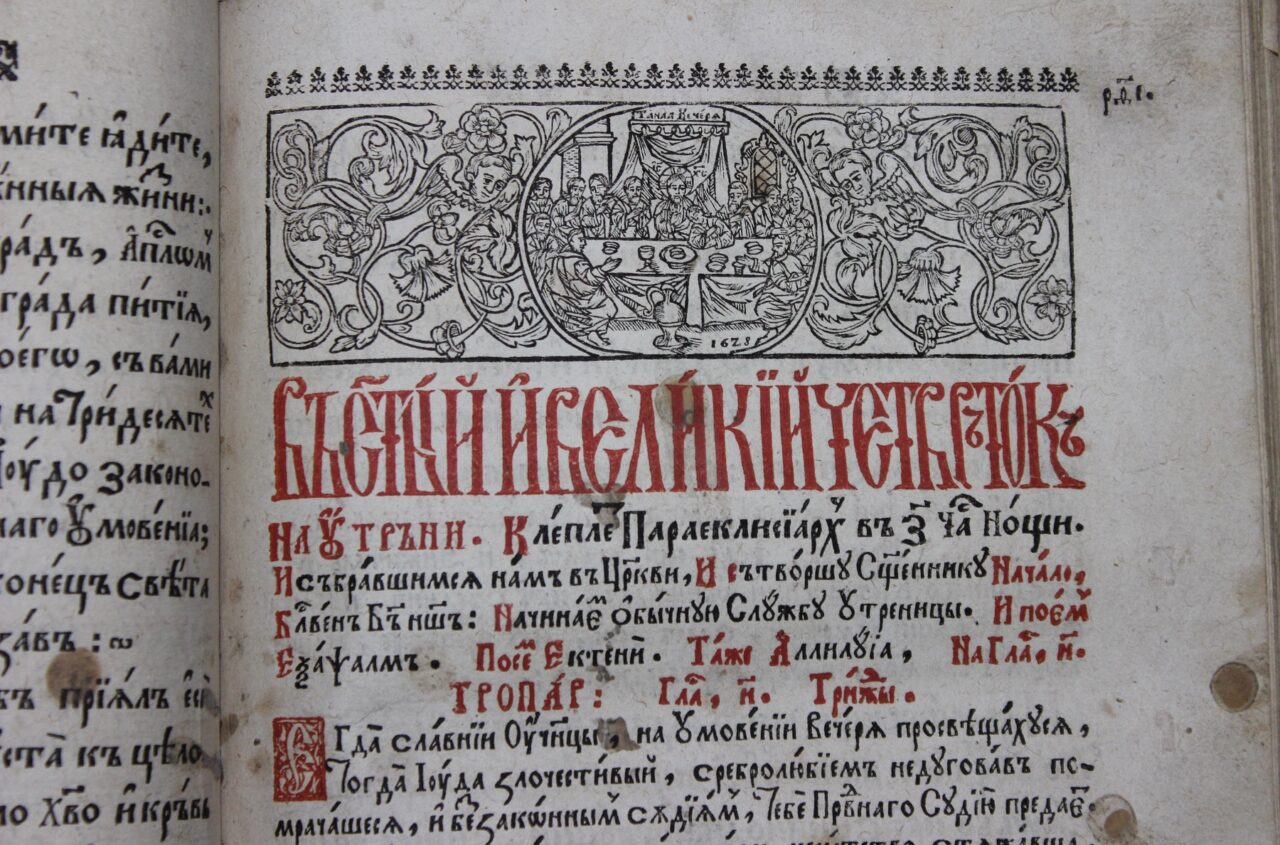 ми́те ꙗ҆ди́те,
жи́ни:.
пи́тїѧ,
съ ва́ми
на Три́десѧте
І҆ꙋ́до законо-
Оу҆мове́нїѧ;
свѣ́та
прїѧ́лъ є҆сѝ
къ цѣло
Хв҃о и҆ кръвь
Таѝнаѧ Вечерѧ
1628
ВЪ СТ҃Ы́Й И҆ ВЕЛИ́КЇЙ ЧЕТВЕРТО́КЪ
НА ОУ҆́ТРЪНИ. Кле́пле Параеклисїа́рх въ з҃ Ча҃ Но́щи.
И събра́вшимсѧ на́мъ въ Цр҃кви, И сътво́ршꙋ Сщ҃е́нникꙋ Нача́ло,
Бл҃ве́нъ Бъ҃ нш҃ъ: Начина́е҆м ѻ҆бы́чнꙋю Слꙋ́жбꙋ Оутреницы. И пое́м
Еѯа́ѱалмъ. По се́м Ектенїѝ. Та́же Аллилꙋ́їа, На Гла҃, и҃.
ТРОПА́Р: Гла҃, и҃. Три́жды.
Е Гда̀ сла́внїи Оу҆чн҃цы, на Оумове́нїи Вече́рѧ просвѣща́хꙋсѧ,
Тогда̀ Іꙋ́да злочести́вый, сребролю́бїемъ недꙋгова́въ по-
мрача́шесѧ, и҆ беззако́нным сꙋдїѧ́м, Тебѐ Пра́внаго Сꙋдїю̀ предае҆.